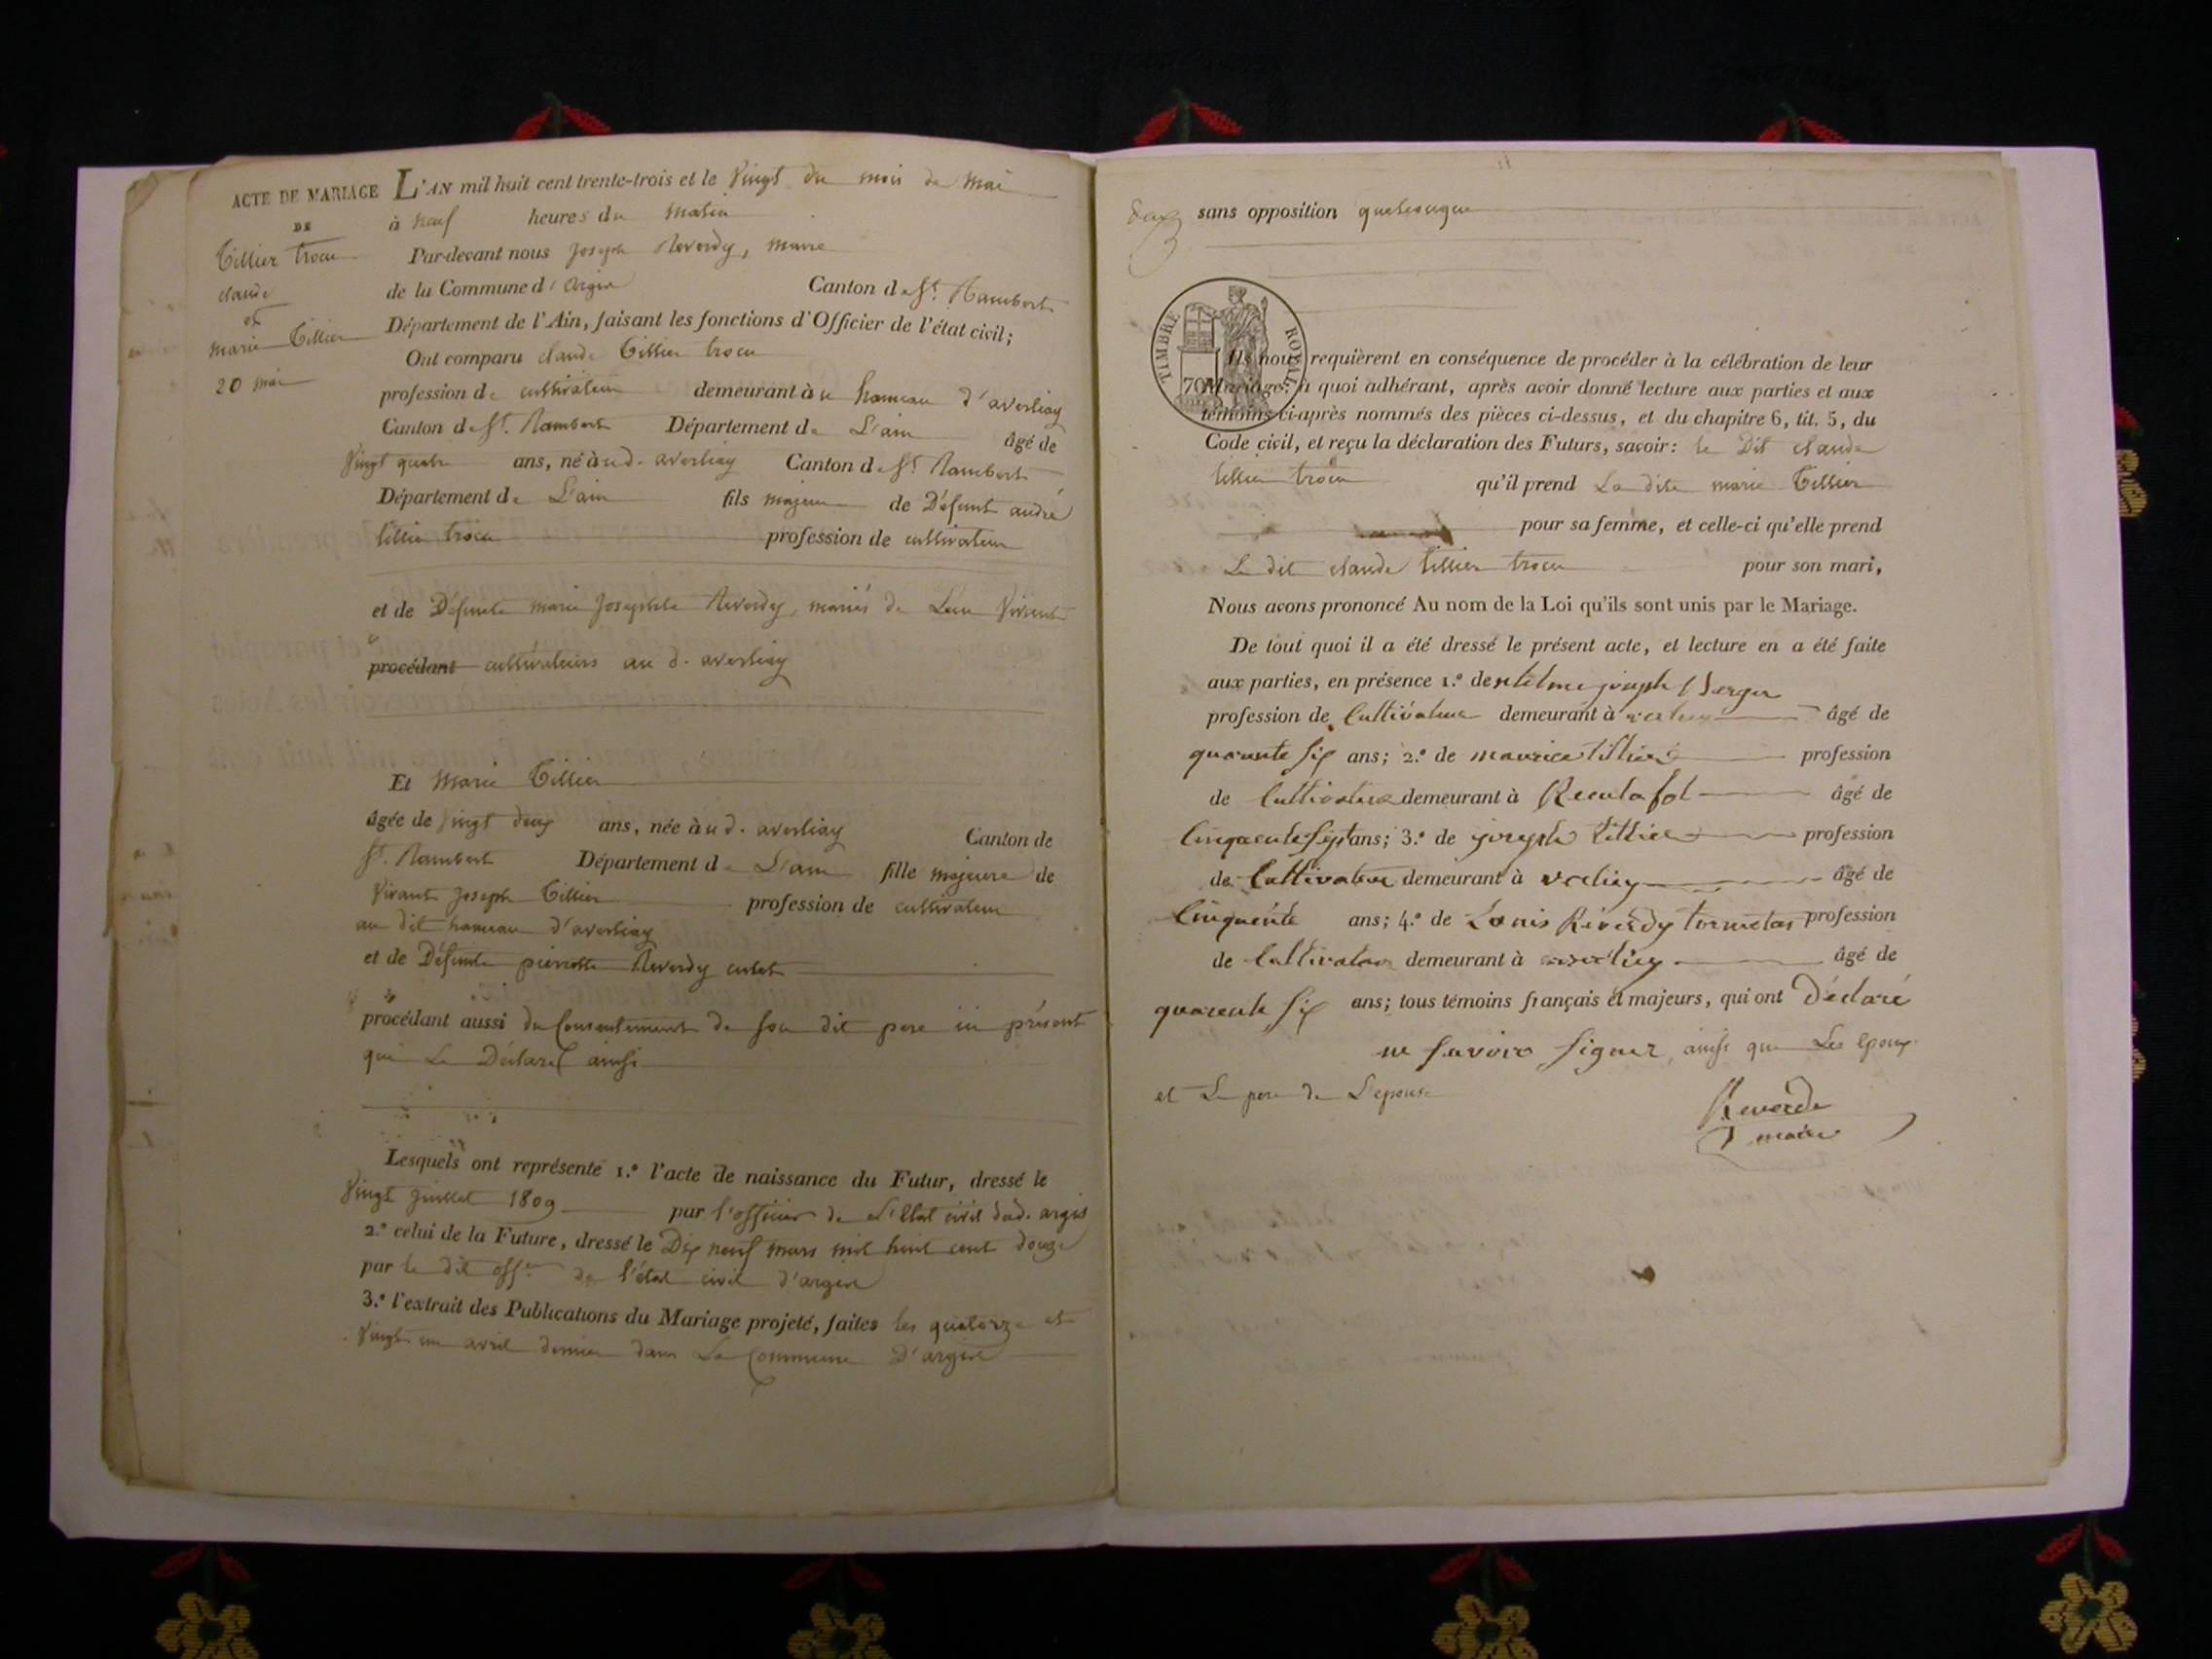 ACTE DE MARIAGE
DE
Tillier trocu
claude
et
marie Tillier
20 mai
L'AN mil huit cent trente-trois et le Vingt du mois de mai
à neuf heures du matin
Par-devant nous joseph Reverdy, maire
de la Commune d'argis Canton de St. Rambert
Département de l'Ain, faisant les fonctions d'Officier de l'état civil;
Ont comparu claude Tillier trocu
profession de cultivateur demeurant à u hameau d'averliay
Canton de St. Rambert Département de L'ain âgé de
Vingt quatre ans, né à ud. averliay Canton de St. Rambert
Département de L'ain fils majeur de Défunt andré
tillier trocu profession de cultivateur
et de Défunte marie josephte Reverdy, mariés de Leur Vivant
procédant cultivateurs au d. averliay
Et Marie Tillier
âgée de Vingt deux ans, née à ud. averliay Canton de
St. Rambert Département de L'ain fille majeure de
Vivant joseph Tillier profession de cultivateur
au dit hameau d'averliay
et de Défunte pierrotte Reverdy
procédant aussi du Consentement de son dit pere ici présent
qui Le Déclare ainsi
Lesquels ont représenté 1.º l'acte de naissance du Futur, dressé le
Vingt juillet 1809 par l'officier de L'Etat civil dud. argis
2.º celui de la Future, dressé le Dix neuf mars mil huit cent douze
par le dit offer de l'état civil d'argis
3.º l'extrait des Publications du Mariage projeté, faites les quatorze et
Vingt un avril dernier dans La Commune D'argis
sans opposition quelconque
TIMBRE ROYAL
70
Ils nous requièrent en conséquence de procéder à la célébration de leur
Mariage; à quoi adhérant, après avoir donné lecture aux parties et aux
témoins ci-après nommés des pièces ci-dessus, et du chapitre 6, tit. 5, du
Code civil, et reçu la déclaration des Futurs, savoir: le Dit claude
tillier trocu qu'il prend La dite marie Tillier
pour sa femme, et celle-ci qu'elle prend
Le dit claude tillier trocu pour son mari,
Nous avons prononcé Au nom de la Loi qu'ils sont unis par le Mariage.
De tout quoi il a été dressé le présent acte, et lecture en a été faite
aux parties, en présence 1.º de joseph Berger
profession de Cultivateur demeurant à âgé de
quarante six ans; 2.º de maurice tillier profession
de Cultivateur demeurant à Reculafol âgé de
Cinquante sept ans; 3.º de joseph tillier profession
de Cultivateur demeurant à verliay âgé de
Cinquante ans; 4.º de Louis Reverdy tornietas profession
de Cultivateur demeurant à averliay âgé de
quarente six ans; tous témoins français et majeurs, qui ont Déclaré
ne savoir signer, ainsi que Les époux
et Le pere de L'epouse
Reverdi
maire